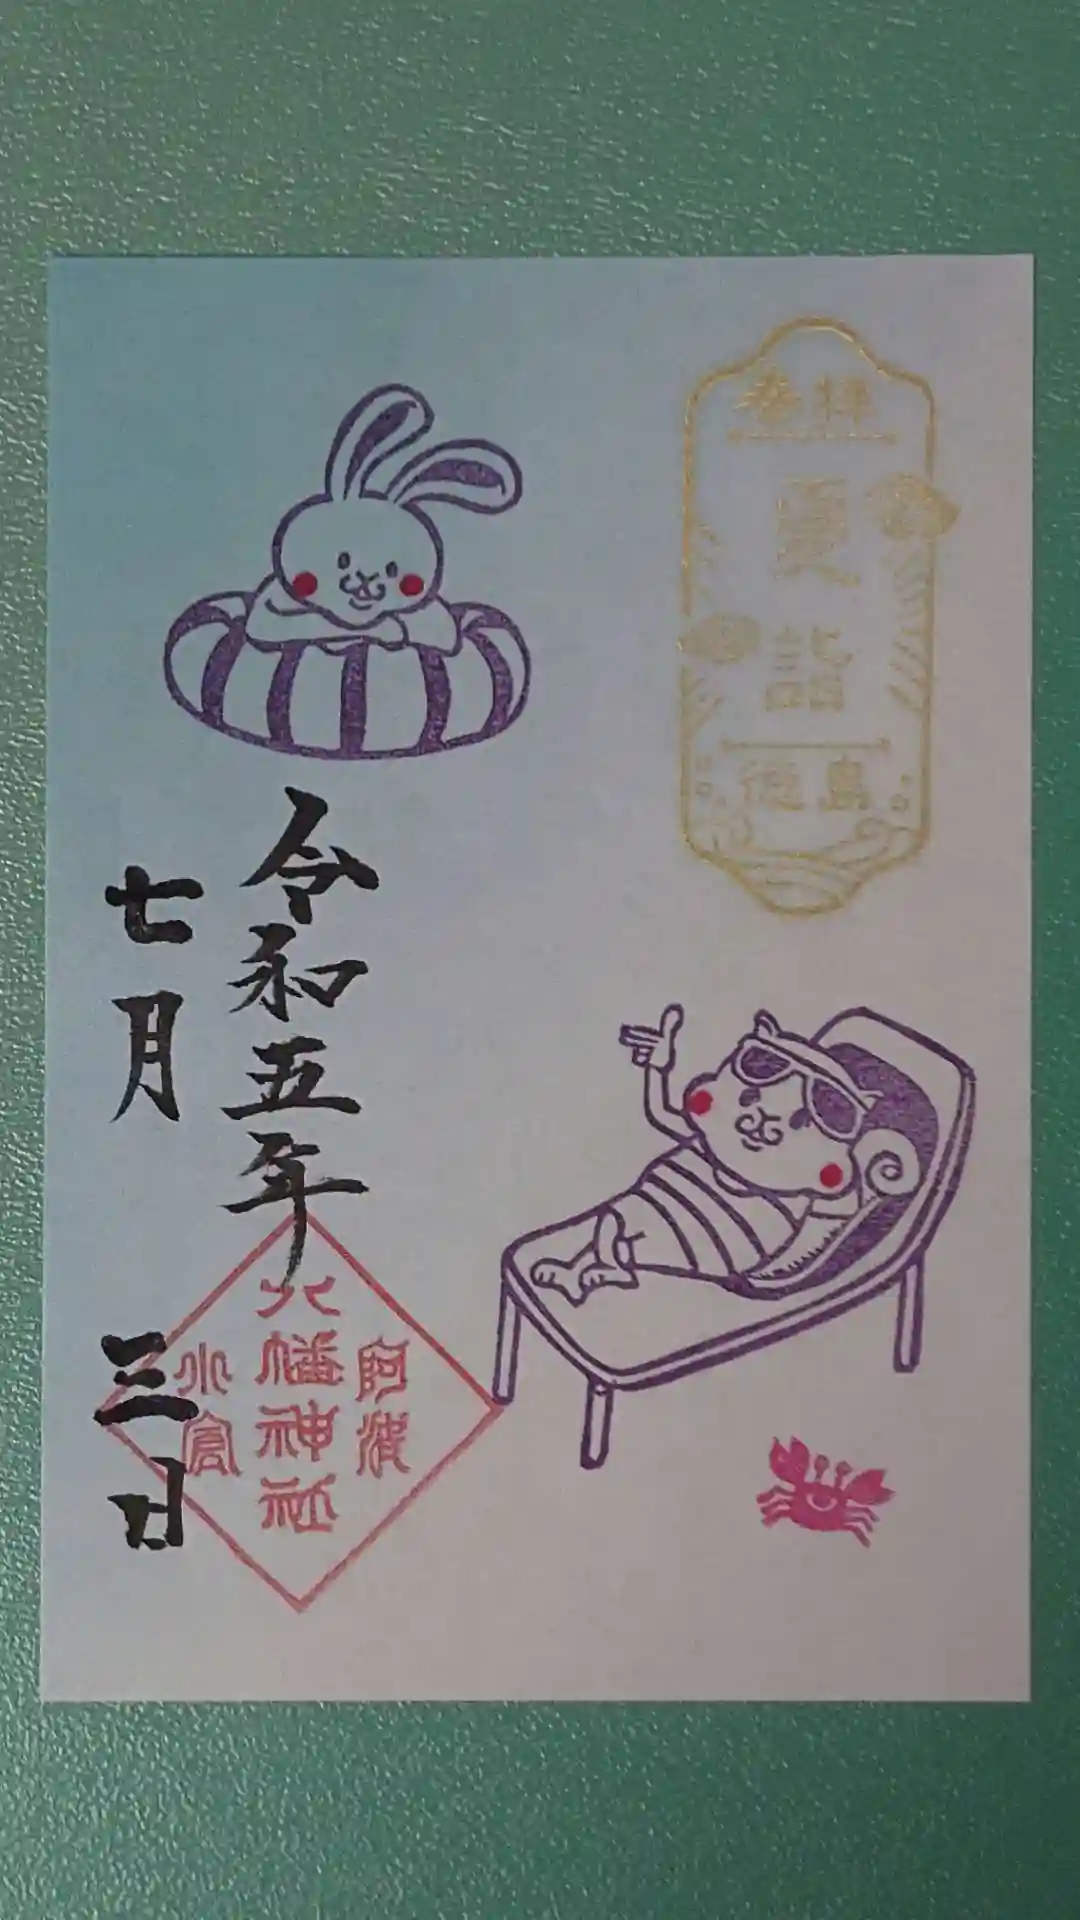 奉拝
夏詣
徳島
令和五年
七月三日
阿波
八幡神社
小倉